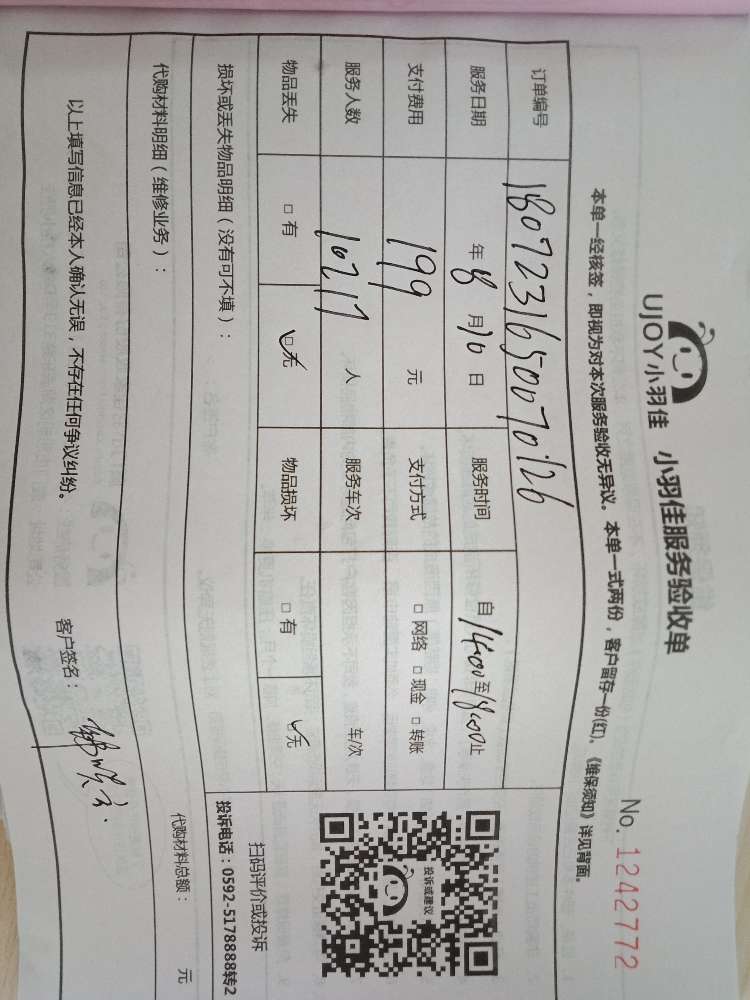 UJOY小羽佳 小羽佳服务验收单
No. 1242772
本单一经核签，即视为对本次服务验收无异议。本单一式两份，客户留存一份(红)。《维保须知》详见背面。
订单编号 1807231650070126
服务日期 年 8 月 10 日 服务时间 自 14:00 至 18:00 止
支付费用 199 元 支付方式 □ 网络 □ 现金 □ 转账
服务人数 10217 人 服务车次 车/次
物品丢失 □ 有 □ 无 物品损坏 □ 有 □ 无
投诉或建议
扫码评价或投诉
投诉电话：0592-5178888转2
损坏或丢失物品明细（没有可不填）：
代购材料明细（维修业务）：
代购材料总额： 元
以上填写信息已经本人确认无误，不存在任何争议纠纷。 客户签名：